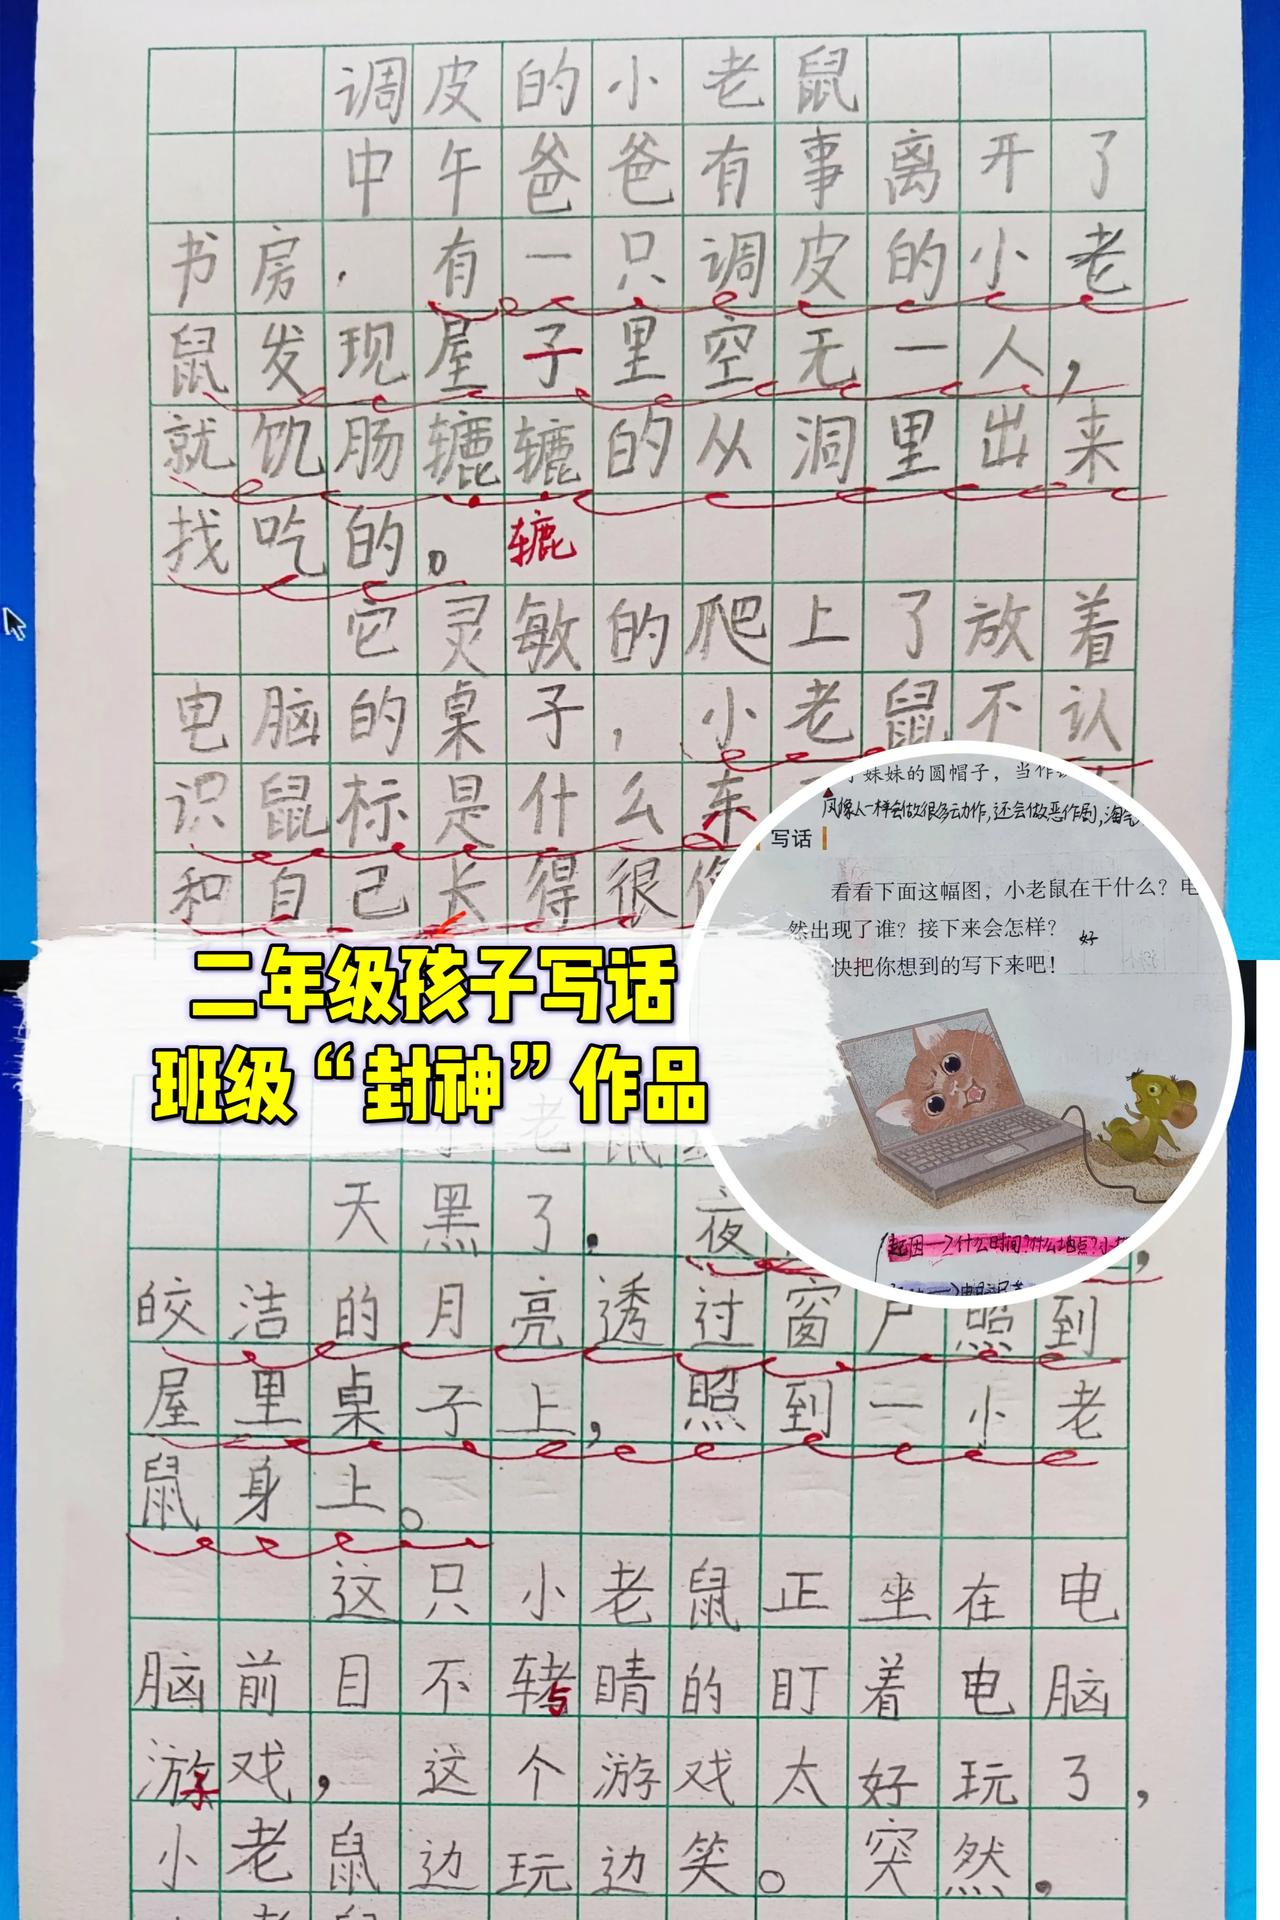 调皮的小老鼠
中午爸爸有事离开了
书房，有一只调皮的小老
鼠发现屋子里空无一人，
就饥肠辘辘的从洞里出来
找吃的。辘
它灵敏的爬上了放着
电脑的桌子，小老鼠不认
识鼠标是什么东
和自己长得很
妹妹的圆帽子，当作
风像人一样会做很多动作,还会做恶作剧,淘气
写话
看看下面这幅图，小老鼠在干什么？电
然出现了谁？接下来会怎样？
好
快把你想到的写下来吧！
二年级孩子写话
班级“封神”作品
起因→什么时间?什么地点?小
老鼠
天黑了。夜
，
皎洁的月亮透过窗户照到
屋里桌子上，照到一小老
鼠身上。
这只小老鼠正坐在电
脑前目不睛的盯着电脑
游戏，这个游戏太好玩了，
小老鼠边玩边笑。突然，
老鼠